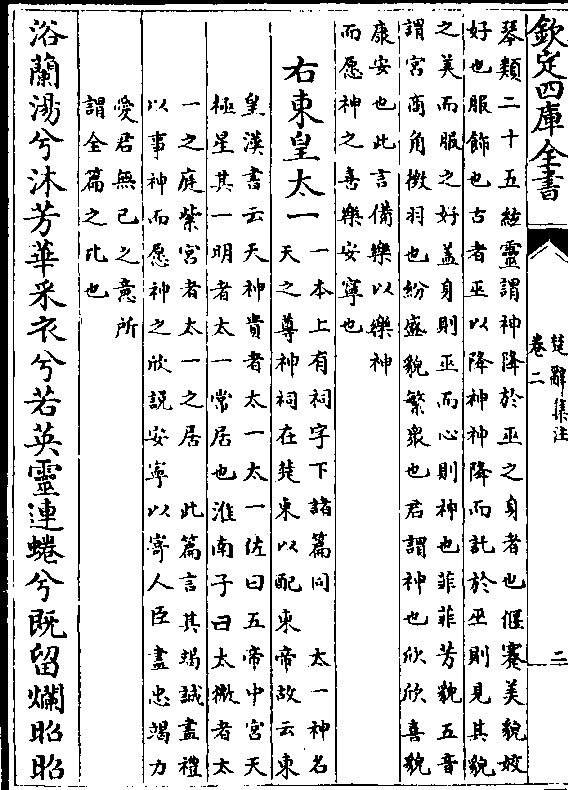 欽定四庫全書
楚辭集注
卷二
二
琴類二十五絃靈謂神降於巫之身者也偃蹇美貌姣
好也服飾也古者巫以降神神降而託於巫則見其貌
之美而服之好盖身則巫而心則神也菲菲芳貌五音
謂宮商角徵羽也紛盛貌繁衆也君謂神也欣欣喜貌
康安也此言備樂以樂神
而愿神之喜樂安寧也
右東皇太一
一本上有祠字下諸篇同 太一神名
天之尊神祠在楚東以配東帝故云東
皇漢書云天神貴者太一太一佐曰五帝中宮天
極星其一明者太一常居也淮南子曰太微者太
一之庭紫宮者太一之居 此篇言其竭誠盡禮
以事神而愿神之欣說安寧以寄人臣盡忠竭力
愛君無已之意所
謂全篇之比也
浴蘭湯兮沐芳華采衣兮若英靈連蜷兮既留爛昭昭